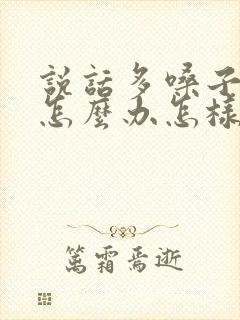 説話多嗓子
怎麼办怎樣
篤霜焉逝